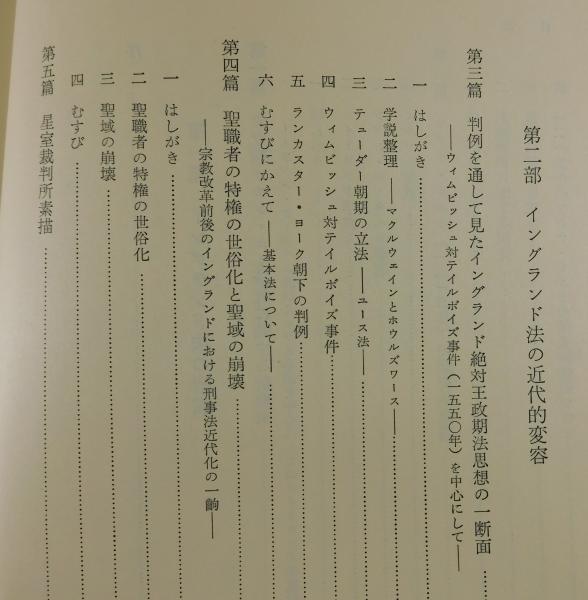 第二部 イングランド法の近代的変容
第三篇 判例を通して見たイングランド絶対王政期法思想の一断面……
――ウィムビッシュ対テイルボイズ事件(一五五〇年)を中心にして――
一 はしがき……
二 学説整理 ――マクルウェインとホウルズワース――……
三 テューダー朝期の立法 ――ユース法――……
四 ウィムビッシュ対テイルボイズ事件……
五 ランカスター・ヨーク朝下の判例……
六 むすびにかえて ――基本法について――……
第四篇 聖職者の特権の世俗化と聖域の崩壊……
――宗教改革前後のイングランドにおける刑事法近代化の一齣――
一 はしがき……
二 聖職者の特権の世俗化……
三 聖域の崩壊……
四 むすび……
第五篇 星室裁判所素描……